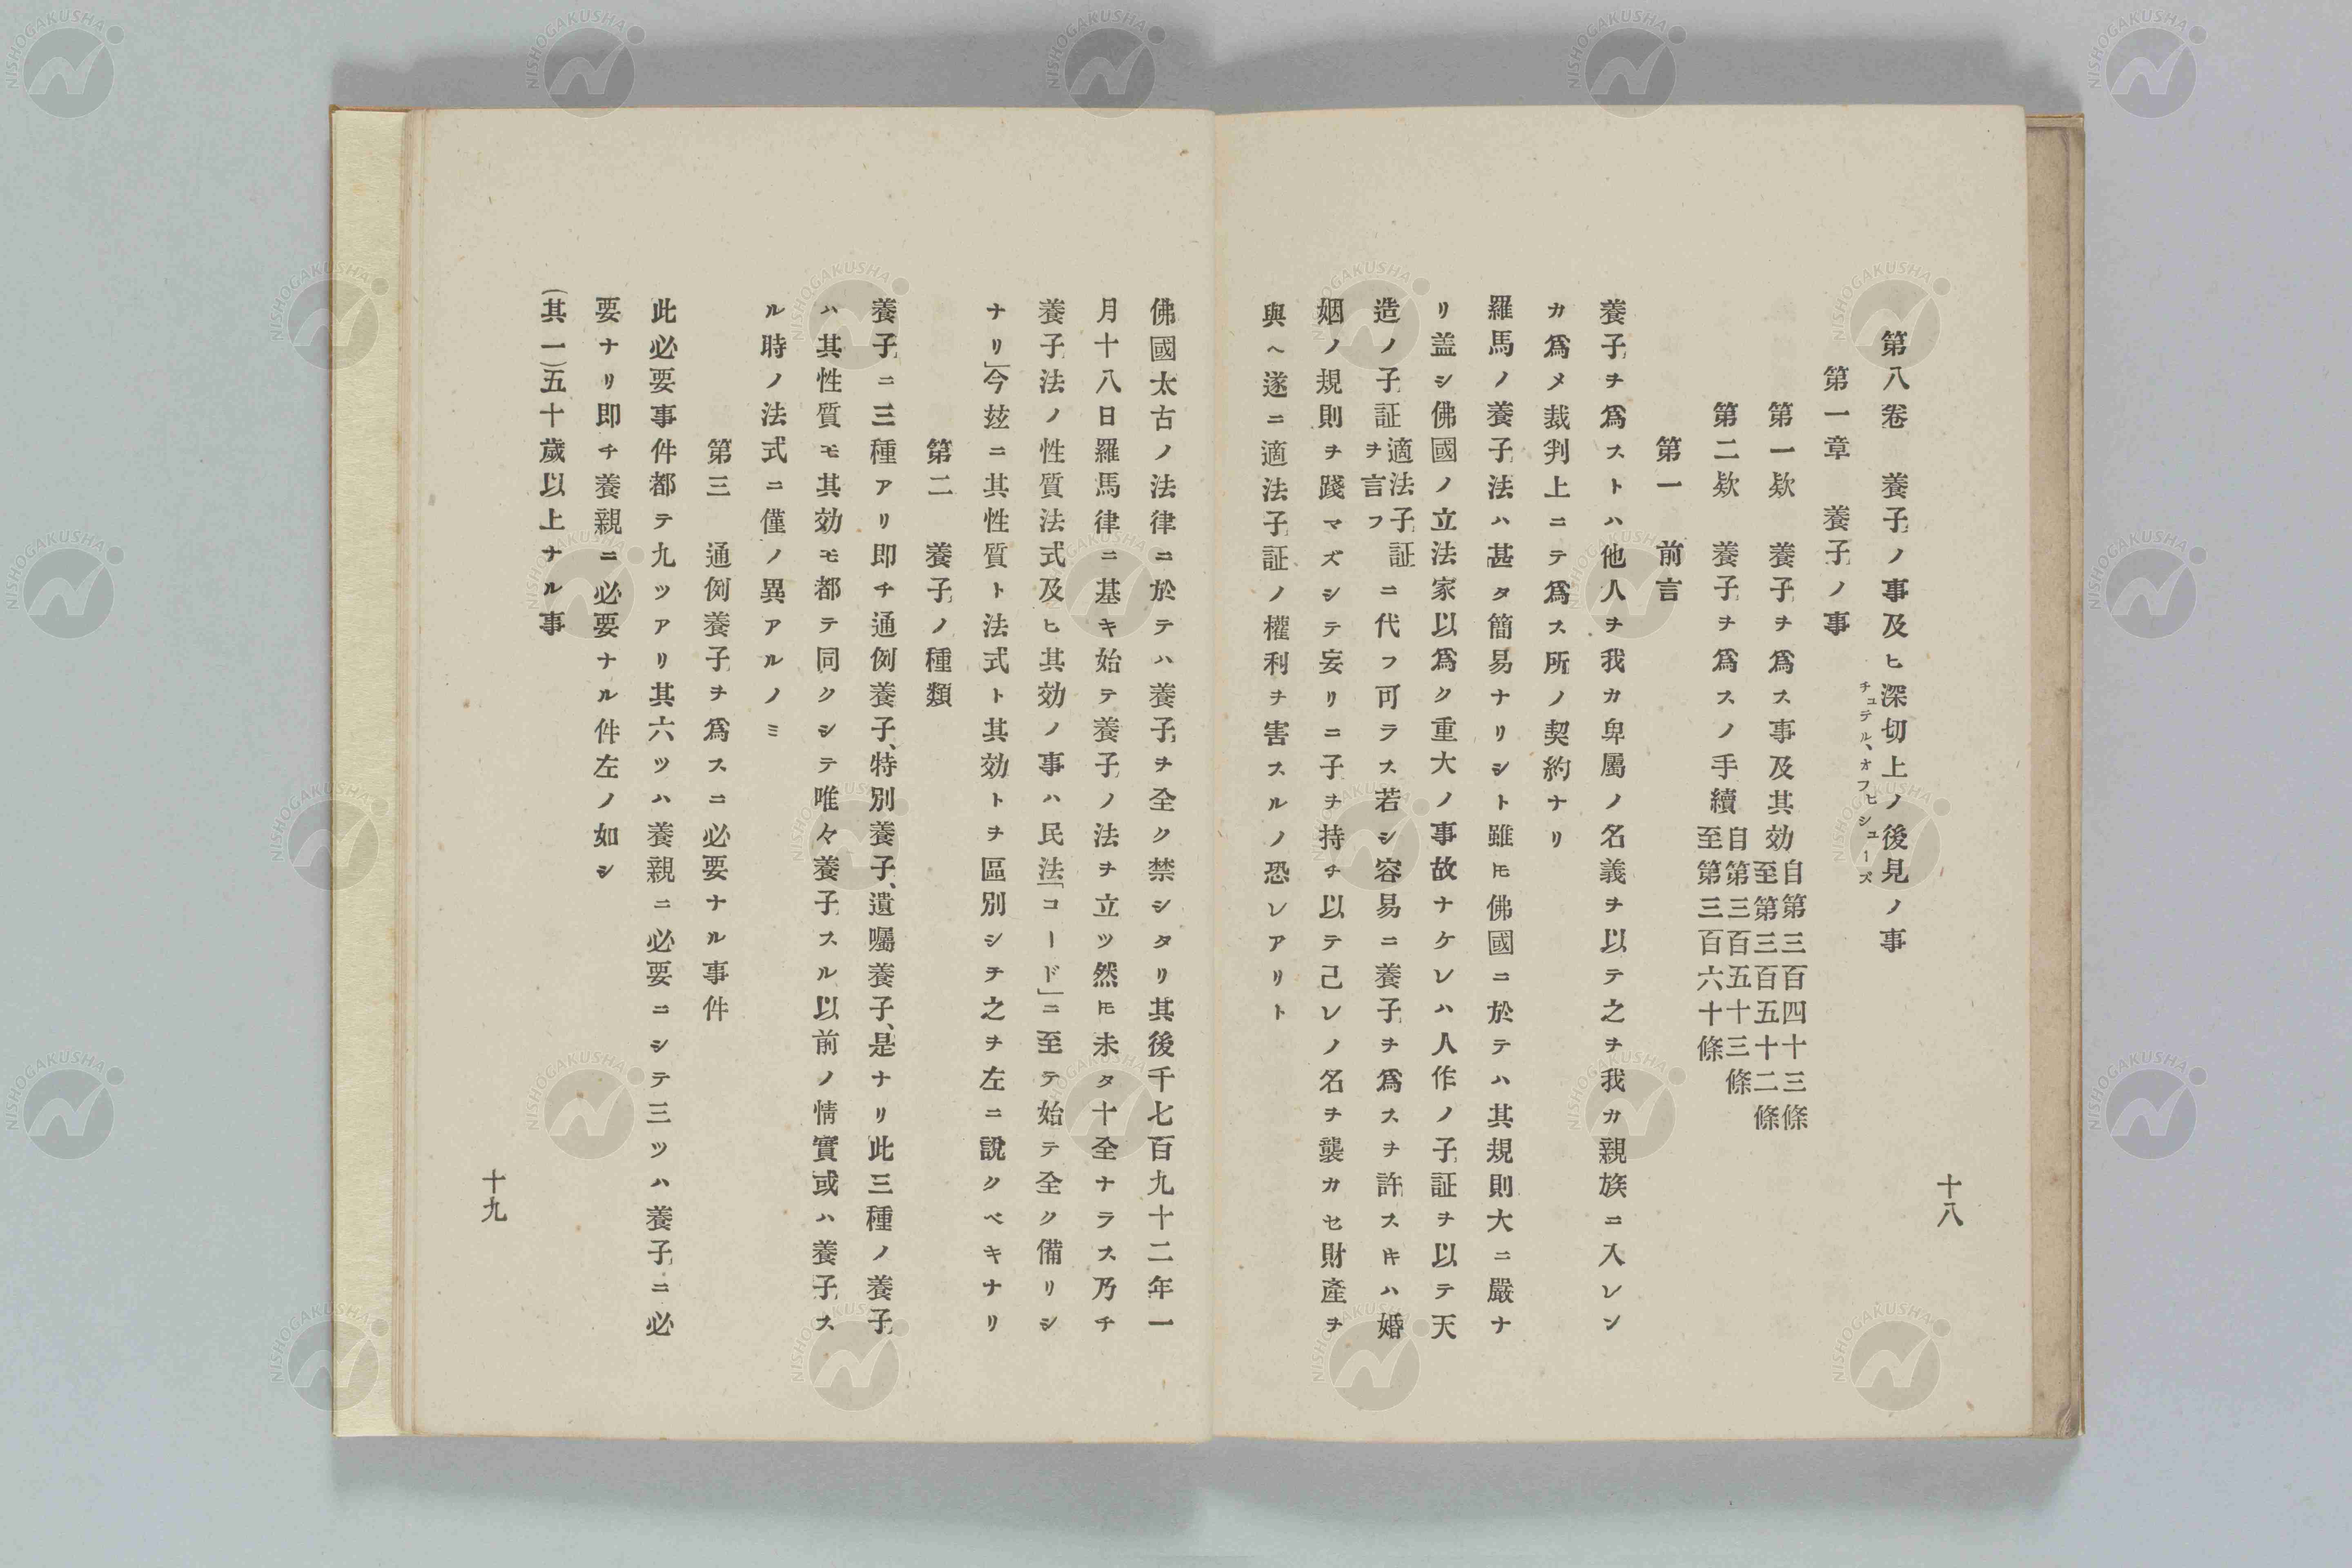 十八
第八卷　養子ノ事及ヒ深切上ノ後見ノ事
チュテル、オフヒシューズ
第一章　養子ノ事
第一欵　養子ヲ爲ス事及其効 自第三百四十三條
至第三百五十二條
第二欵　養子ヲ爲スノ手續 自第三百五十三條
至第三百六十條
第一　前言
養子ヲ爲ストハ他人ヲ我カ卑屬ノ名義ヲ以テ之ヲ我カ親族ニ入レン
カ爲メ裁判上ニテ爲ス所ノ契約ナリ
羅馬ノ養子法ハ甚タ簡易ナリシト雖𪜈佛國ニ於テハ其規則大ニ嚴ナ
リ盖シ佛國ノ立法家以爲ク重大ノ事故ナケレハ人作ノ子証ヲ以テ天
造ノ子証 適法子証
ヲ言フ ニ代フ可ラス若シ容易ニ養子ヲ爲スヲ許ス𪜈ハ婚
姻ノ規則ヲ踐マズシテ妄リニ子ヲ持チ以テ己レノ名ヲ襲カセ財產ヲ
與ヘ遂ニ適法子証ノ權利ヲ害スルノ恐レアリト
佛國太古ノ法律ニ於テハ養子ヲ全ク禁シタリ其後千七百九十二年一
月十八日羅馬律ニ基キ始テ養子ノ法ヲ立ツ然𪜈未タ十全ナラス乃チ
養子法ノ性質法式及ヒ其効ノ事ハ民法「コード」ニ至テ始テ全ク備リシ
ナリ」今玆ニ其性質ト法式ト其効トヲ區別シテ之ヲ左ニ說クベキナリ
第二　養子ノ種類
養子ニ三種アリ即チ通例養子、特別養子、遺囑養子、是ナリ此三種ノ養子
ハ其性質モ其効モ都テ同クシテ唯々養子スル以前ノ情實或ハ養子ス
ル時ノ法式ニ僅ノ異アルノミ
第三　通例養子ヲ爲スニ必要ナル事件
此必要事件都テ九ツアリ其六ツハ養親ニ必要ニシテ三ツハ養子ニ必
要ナリ即チ養親ニ必要ナル件左ノ如シ
(其一)五十歲以上ナル事
十九
NISHOGAKUSHA